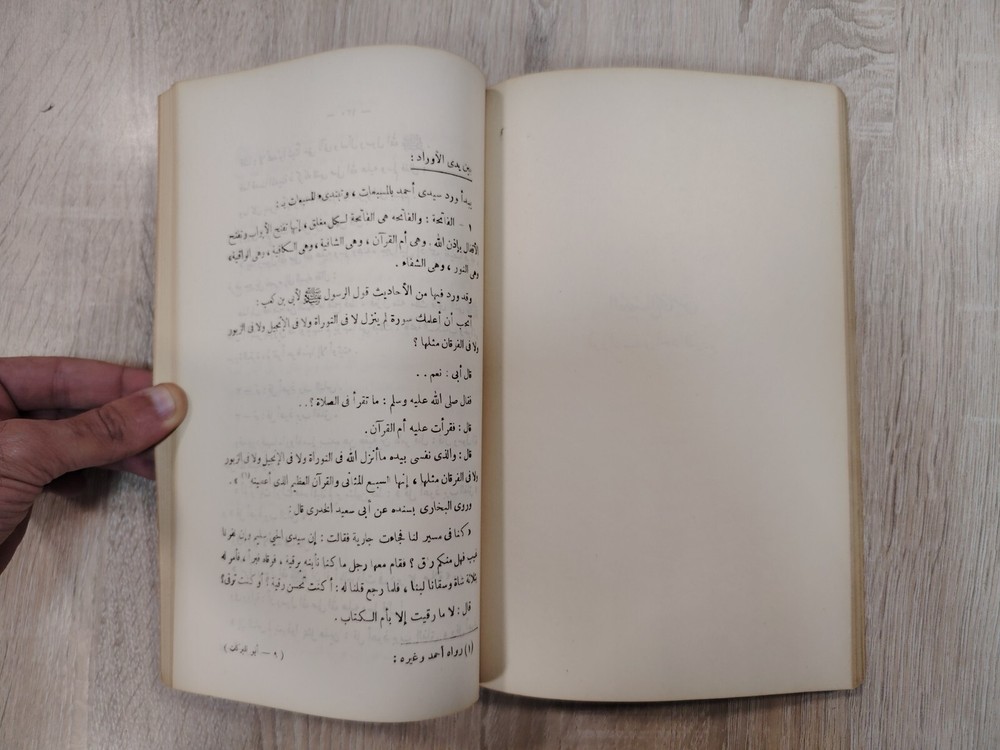 بين يدى الأوراد :
يبدأ ورد سيدى أحمد بالمسبعات ، وتبتدىء المسبعات بـ :
١ – الفاتحة : والفاتحة هى الفاتحة لسكل مغلق ، إنها تفتح الأبواب وتفتح
الأقفال بإذن الله . وهى أم القرآن ، وهى الشافية ، وهى السكافية ، وهى الواقية ،
وهى النور ، وهى الشفاء .
وقد ورد فيها من الأحاديث قول الرسول ﷺ لأبى بن كعب :
أتحب أن أعلمك سورة لم ينزل لا فى التوراة ولا فى الإنجيل ولا فى الزبور
ولا فى الفرقان مثلها ؟
قال أبى : نعم . .
فقال صلى الله عليه وسلم : ما تقرأ فى الصلاة ؟ . .
قال : فقرأت عليه أم القرآن .
قال : والذى نفسى بيده ما أنزل الله فى التوراة ولا فى الإنجيل ولا فى الزبور
ولا فى الفرقان مثلها ، إنها السبع المثانى والقرآن العظيم الذى أعطيته (١) » .
وروى البخارى بسنده عن أبى سعيد الخدرى قال :
« كنا فى مسير لنا فجاءت جارية فقالت : إن سيدى الحى سليم وإن نفرنا
غيب فهل منكم راق ؟ فقام معها رجل ما كنا نأبنه برقية ، فرقاه فبرأ ، فأمر له
بثلاثة شاة وسقانا لبنا ، فلما رجع قلنا له : أكنت تحسن رقية ؟ أو كنت ترقى ؟
قال : لا ما رقيت إلا بأم السكتاب .
(١) رواه أحمد وغيره :
( ٩ –